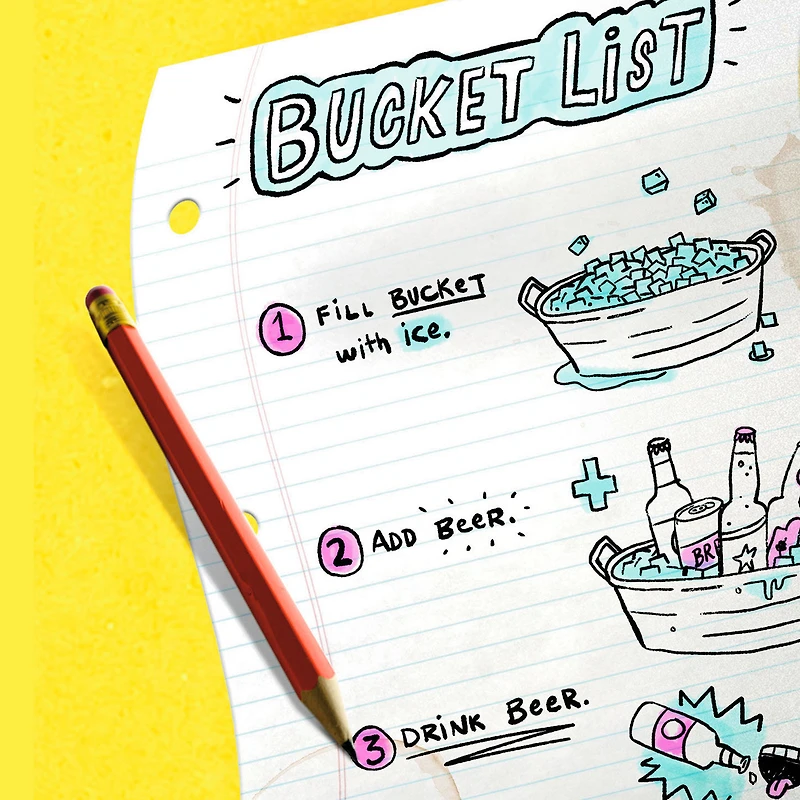 BUCKET LiST
1 FiLL BUCKET
with ice.
2 ADD BeeR.
BRE
3 DRiNK BeeR.